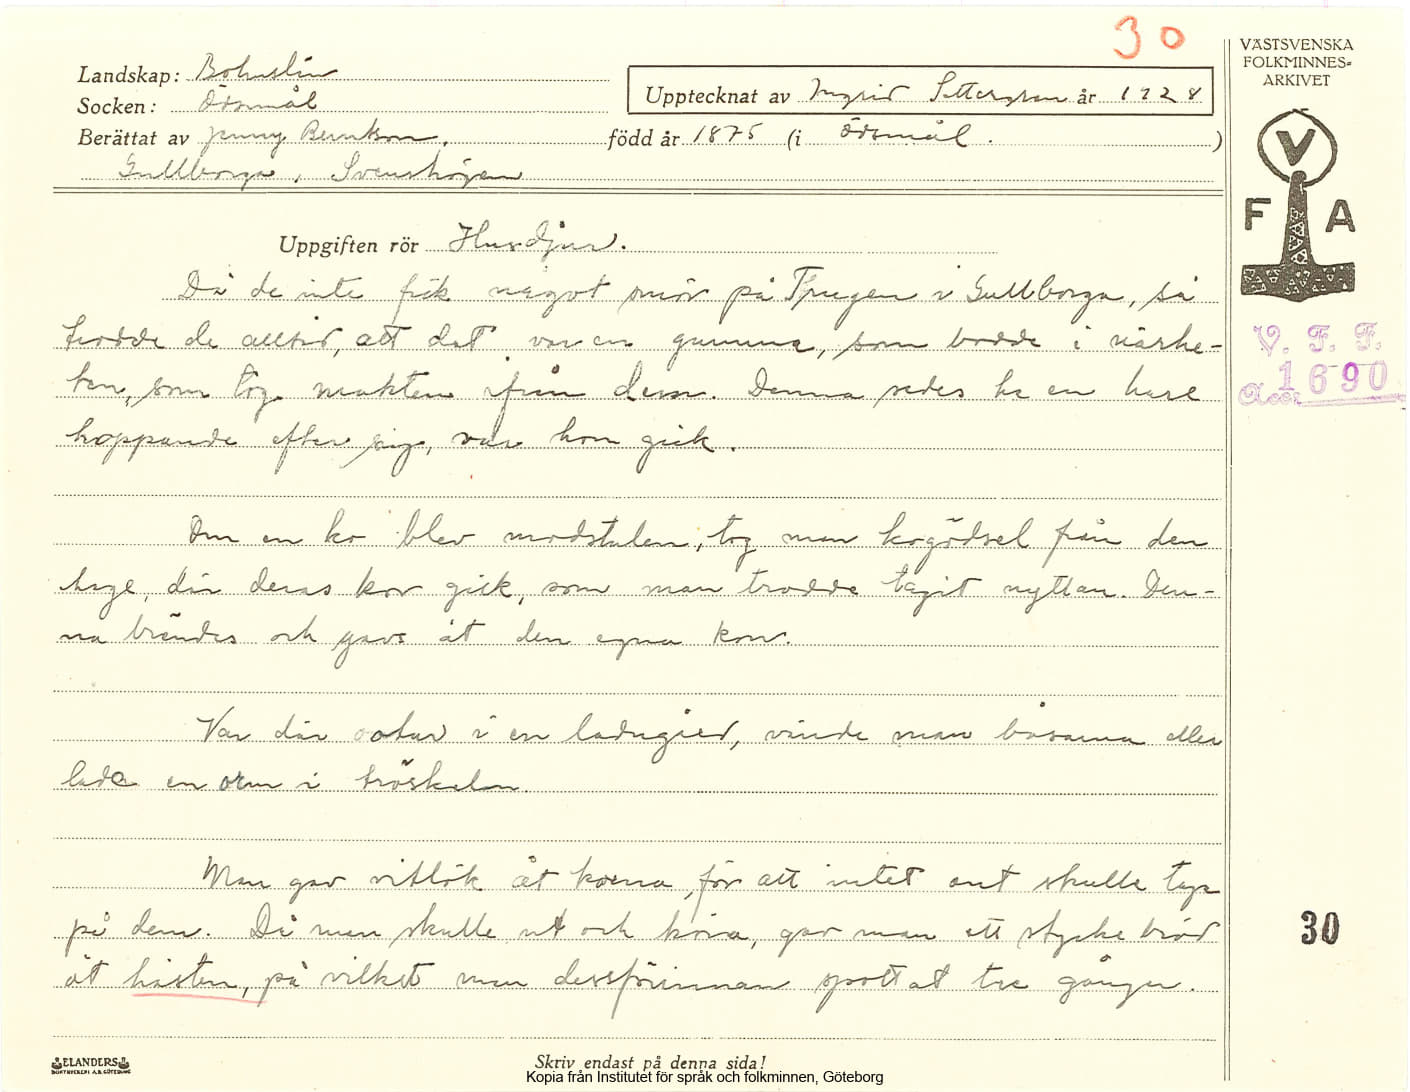 30
VÄSTSVENSKA
FOLKMINNES-
ARKIVET
Landskap: Bohuslän
Socken: Ödsmål
Upptecknat av Ingrid Settergren år 1928
Berättat av Jenny Berntson, född år 1875 (i Ödsmål.)
Gullborga, Svenshögen
V
F A
Uppgiften rör Husdjur.
Då de inte fick något smör på i Gullborga, så
trodde de alltid, att det var en gumma, som bodde i närhe-
ten, som tog makten ifrån dem. Denna sades ha en hare
hoppande efter sig, var hon gick.
V. F. F.
Acc. 1690
Om en ko blev modstulen, tog man kogödsel från den
hage, där deras kor gick, som man trodde tagit nyttan. Den-
na brändes och gavs åt den egna kon.
Var där otur i en ladugård, vände man båsarna eller
lade en orm i tröskeln.
Man gav vitlök åt korna, för att intet ont skulle taga
på dem. Då man skulle ut och köra, gav man ett stycke bröd
åt hästen, på vilket man dessförinnan spottat tre gånger.
30
ELANDERS
BOKTRYCKERI A.B. GÖTEBORG
Skriv endast på denna sida!
Kopia från Institutet för språk och folkminnen, Göteborg